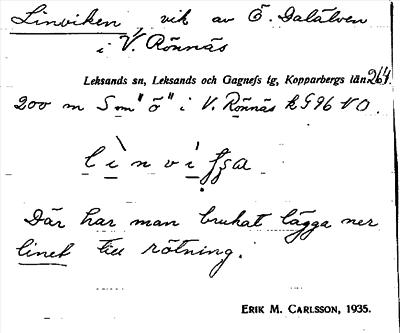 Linviken, vik av Ö. Dalälven
i V. Rönnäs
Leksands sn, Leksands och Gagnefs tg, Kopparbergs län. 264.
200 m S om "ö" i V. Rönnäs k 596 VO.
Där har man brukat lägga ner
linet till rötning.
ERIK M. CARLSSON, 1935.